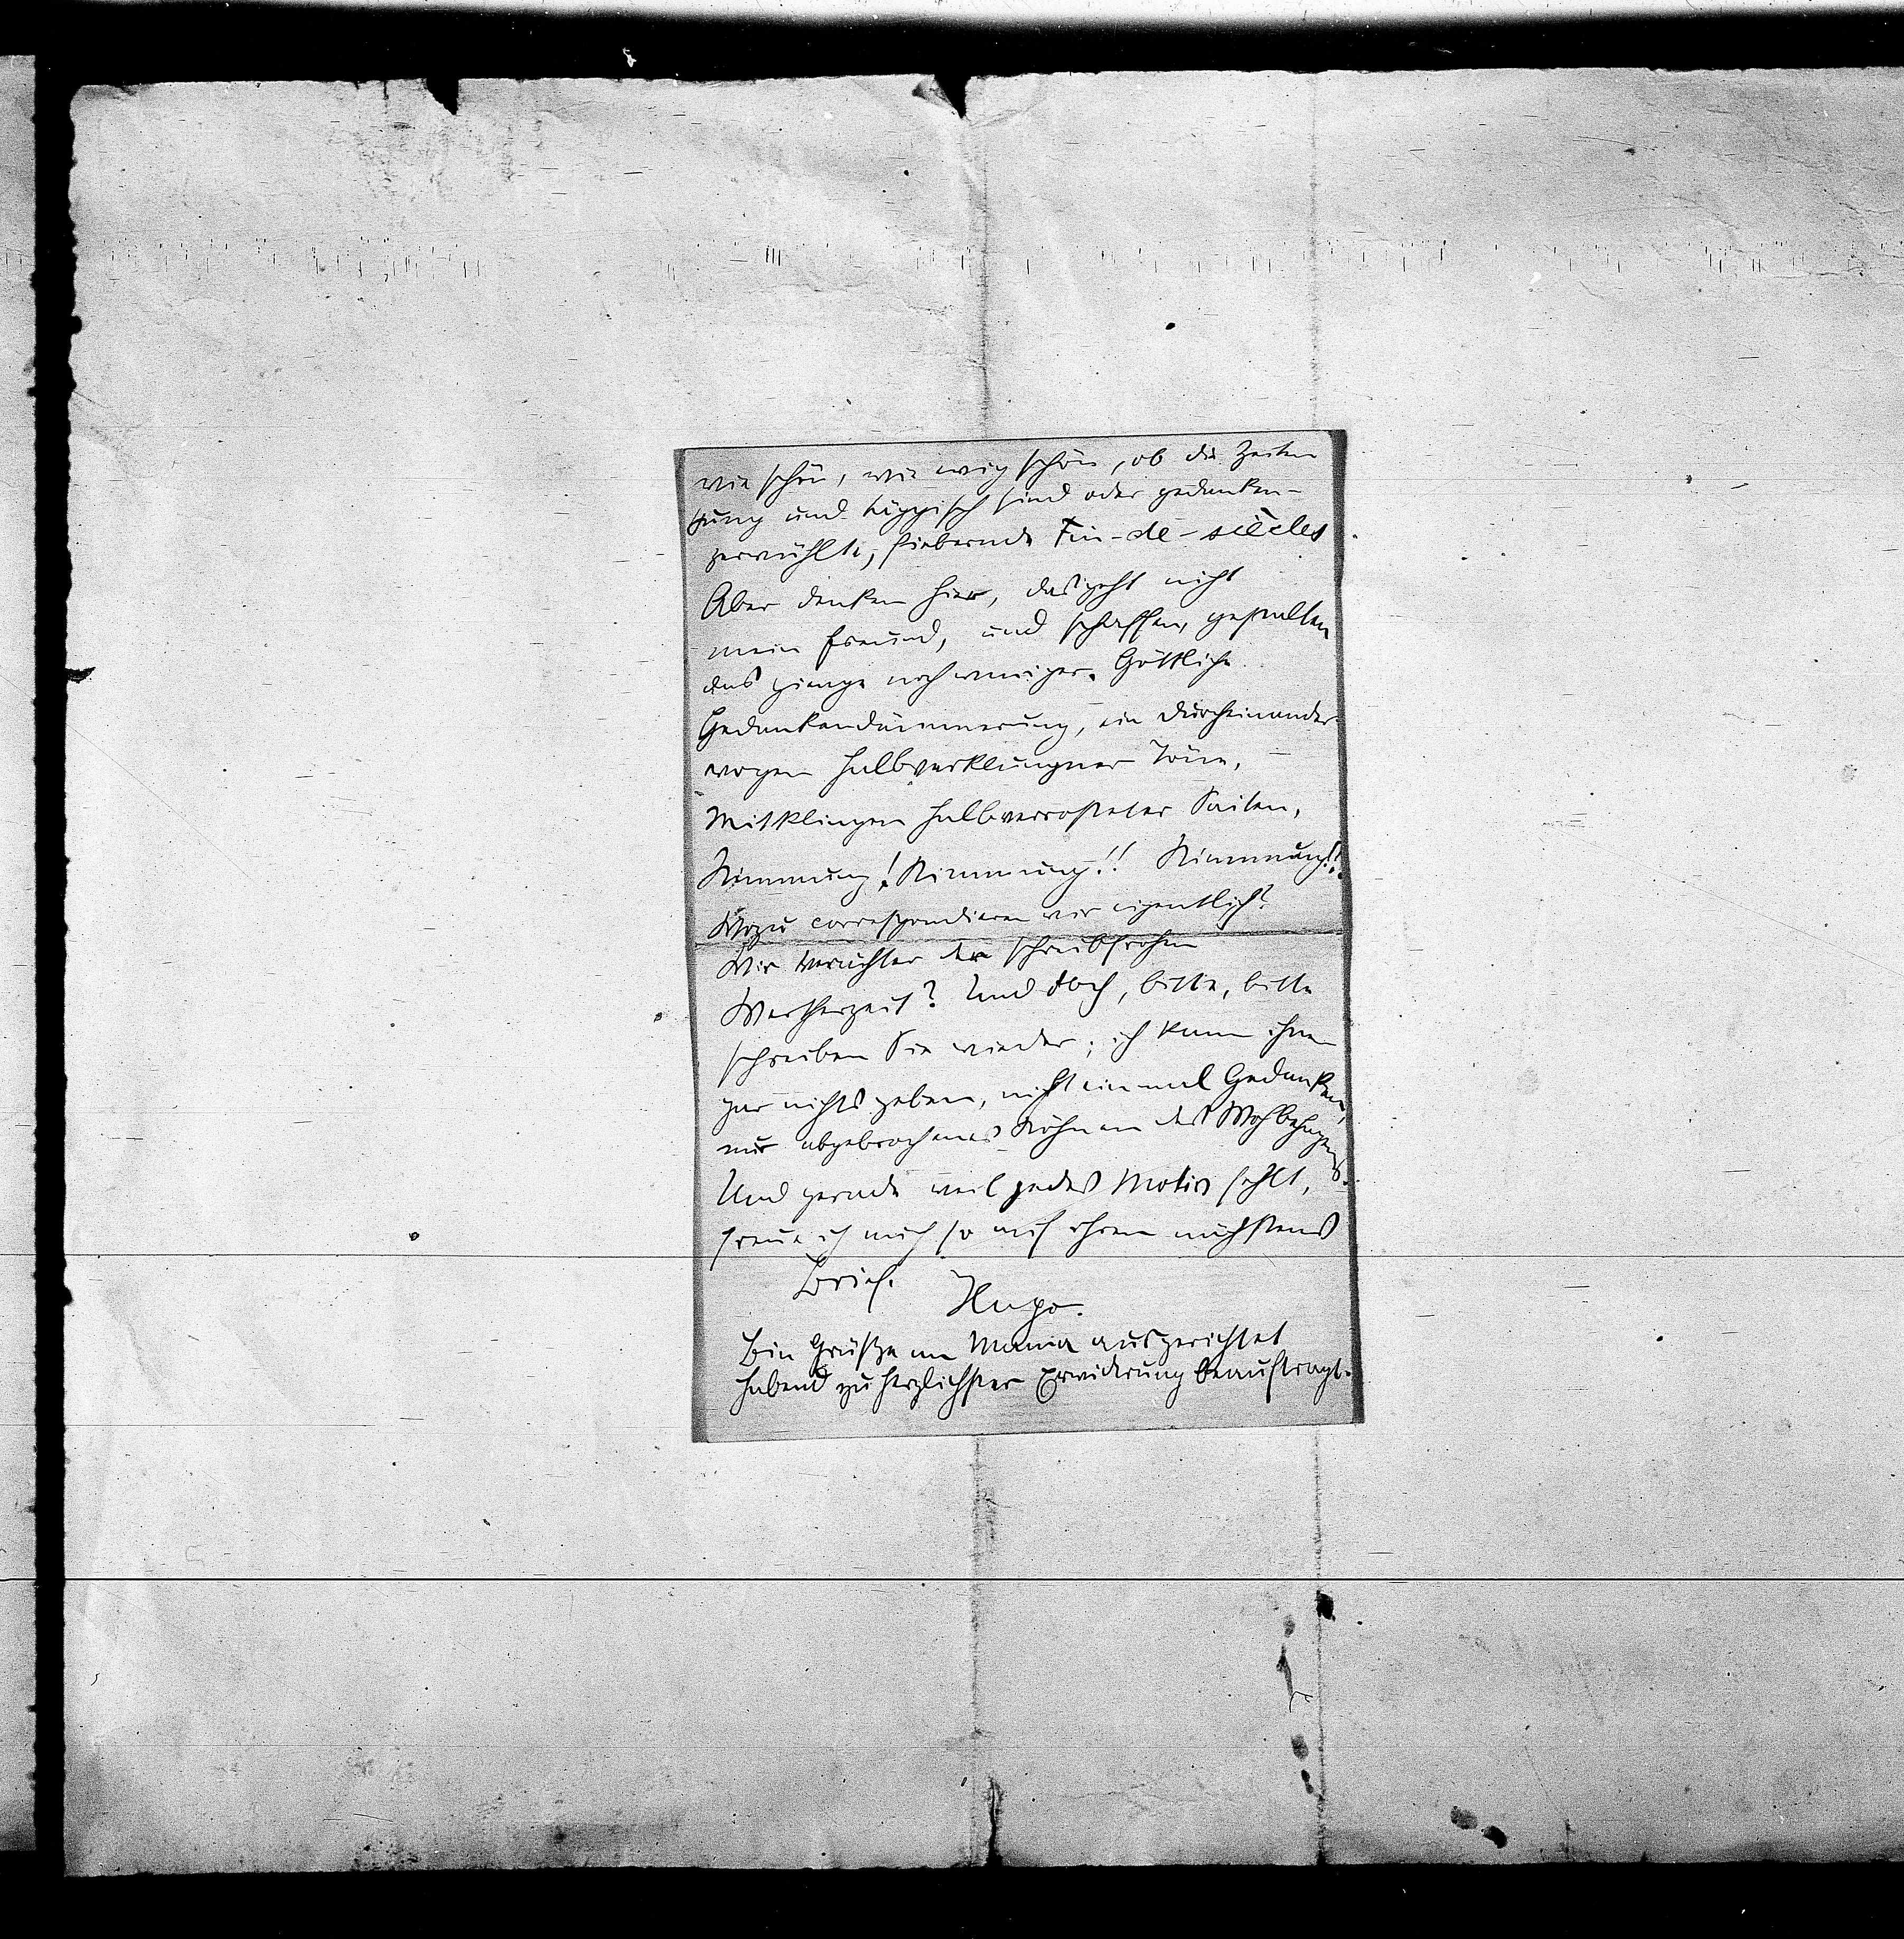 wie schön, wie ewig schön, ob die Zeiten
jung und täppisch sind oder gedanken-
zerwühlte, fiebernde Fin-de-siècles
Aber denken hier, das geht nicht
mein Freund, und schaffen, gestalten
das gienge noch weniger. Göttliche
Gedankendämmerung, ein Durcheinander
wogen halbverklungner Töne,
Mitklingen halbverrosteter Saiten,
Stimmung! Stimmung!! Stimmung!!!
Wozu correspondieren wir eigentlich?
Wir Verächter der schreibfrohen
Wertherzeit? Und doch, bitte, bitte
schreiben Sie wieder; ich kann ihnen
gar nichts geben, nicht einmal Gedanken,
nur abgebrochenes Stöhnen des Wohlbehagens.
Und gerade weil jedes Motiv fehlt,
freue ich mich so auf ihren nächstens
Brief. Hugo.
Bin Grüße an Mama ausgerichtet
habend zu herzlichster Erwiderung beauftragt.